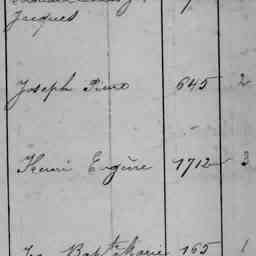 Jacques
Joseph Réné 645 2
Henri Eugène 1712 3
Jn Bapte Marie 165 1